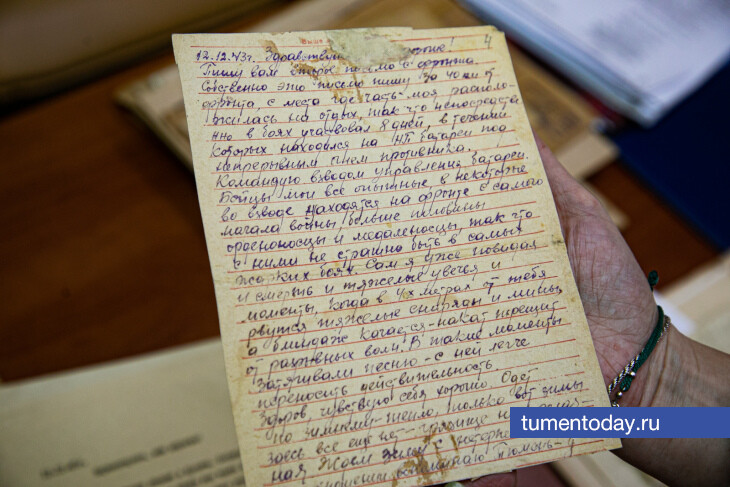 4
12.12.43г. Здравствуй
Пишу вам второе письмо с фронта.
Собственно это письмо пишу за 40 км от
фронта, с места где часть моя располо-
жилась на отдых, так что непосредстве
нно в боях участвовал 8 дней, в течении
которых находился на НП батареи под
непрерывным огнем противника.
Командую взводом управления батареи.
Бойцы мои все опытные, в некоторые
во взводе находятся на фронте с самого
начала войны, больше половины
орденоносцы и медаленосцы, так что
с ними не страшно быть в самых
жарких боях. Сам я уже повидал
и смерть и тяжелые увечья и
моменты, когда в 4х метрах от тебя
рвутся тяжелые снаряды и мины
а блиндаж качается-накат трещит
от разрывных волн. В такие моменты
затягивали песню-с ней легче
переносить действительность.
Здоров, чувствую себя хорошо. Одет
по зимнему-тепло, только вот зимы
здесь все еще нет-
ная. Ждем зимы с нетерпе
tumentoday.ru